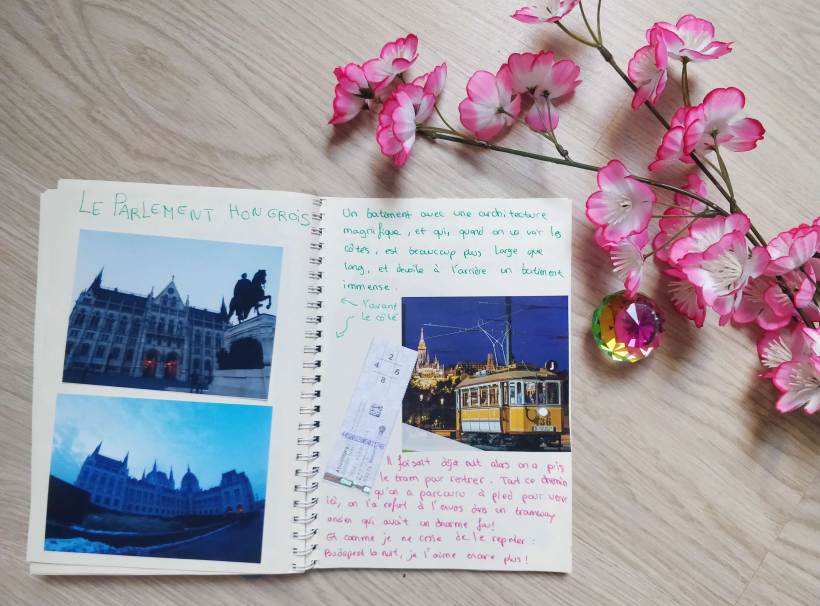 LE PARLEMENT HONGROIS
Un batiment avec une architecture
magnifique, et qui, quand on va voir les
côtés, est beaucoup plus large que
long, et dévoile à l'arrière un batiment
immense.
l'avant
le côté
2
4 5
6
8
Il faisait déjà nuit alors on a pris
le tram pour rentrer. Tout ce chemin
qu'on a parcouru à pied pour venir
ici, on l'a refait à l'envers dans un tramway
ancien qui avait un charme fou!
Et comme je ne cesse de le répéter:
Budapest la nuit, je l'aime encore plus!